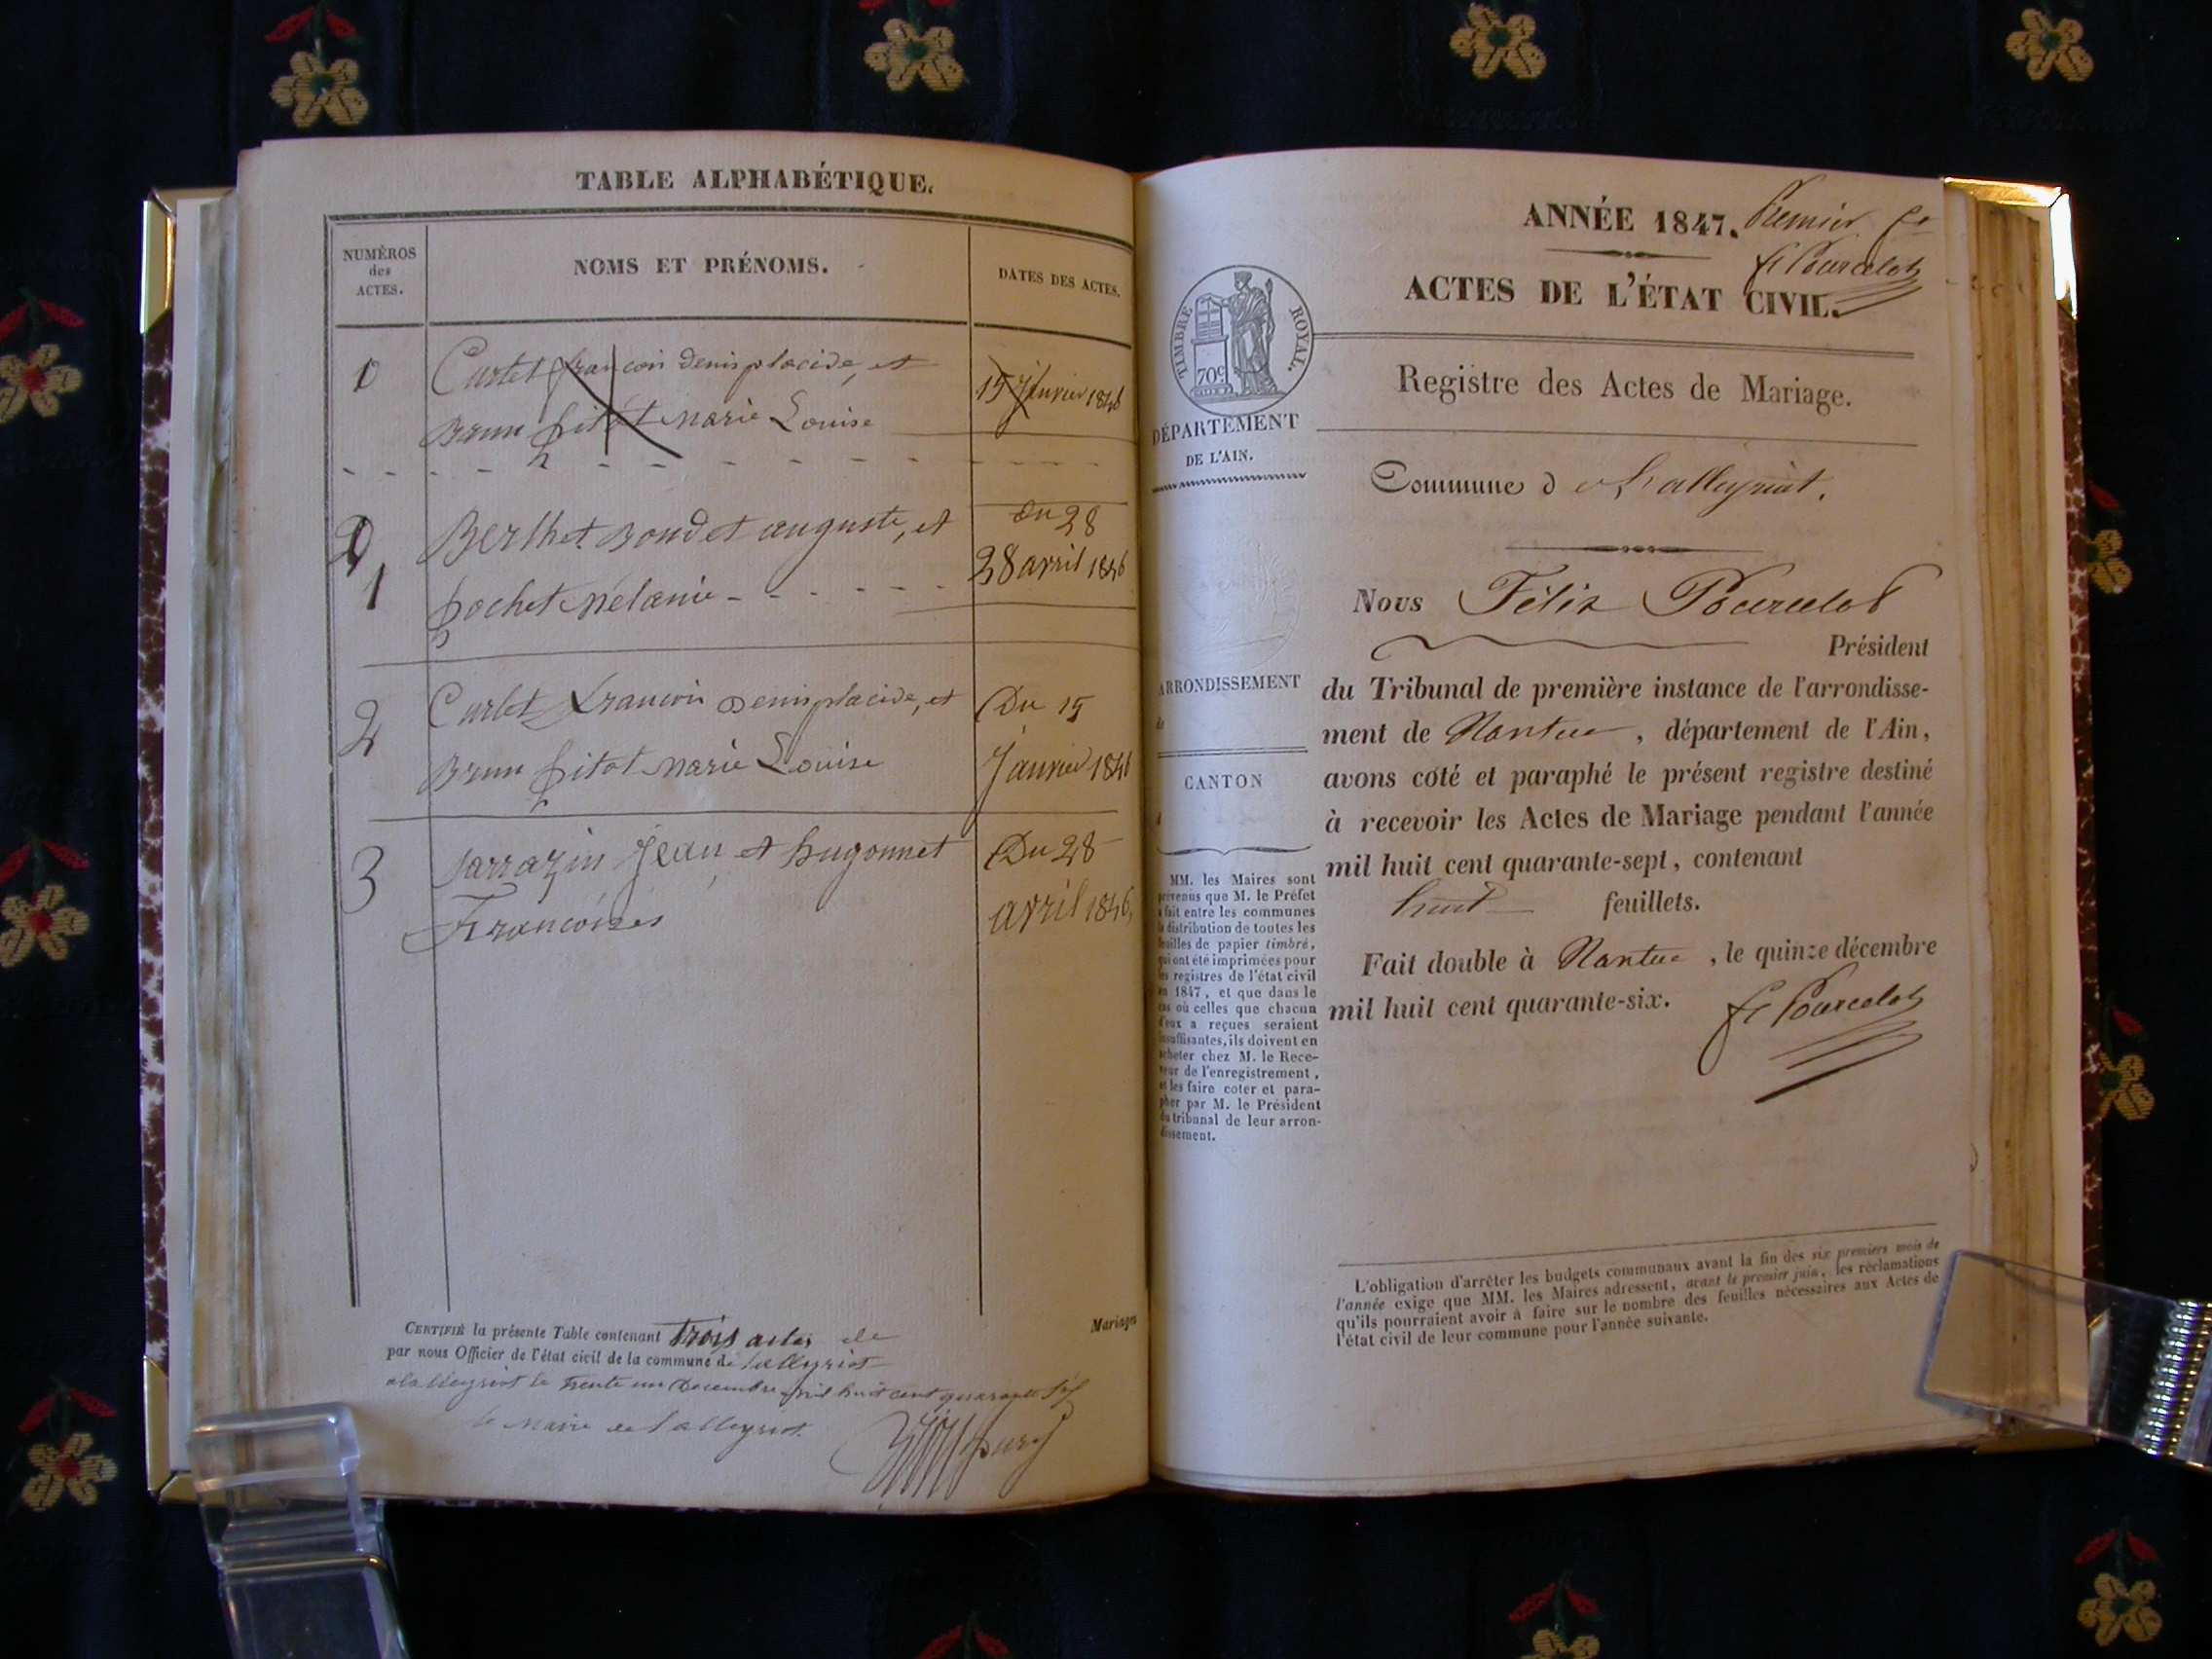 TABLE ALPHABÉTIQUE.
NUMÉROS
des
ACTES.
NOMS ET PRÉNOMS.
DATES DES ACTES.
1 Curtet françois denis placide, et
Brun pitot marie Louise
15 janvier 1846
Berthet Bondet auguste, et
du 28
1 pochet mélanie
28 avril 1846
2 Curtet françois Denis placide, et
Du 15
Brun pitot marie Louise
janvier 1846
3 Sarrazin Jean et hugonnet
Du 28
Françoises
avril 1846
CERTIFIÉ la présente Table contenant trois actes de
Mariages
par nous Officier de l'état civil de la commune de lalleyriat
a lalleyriat le trente un Decembre mil huit cent quarante six
le maire de lalleyriat.
ANNÉE 1847. Premier
F Pourcelot
ACTES DE L'ÉTAT CIVIL.
TIMBRE ROYAL.
70c
Registre des Actes de Mariage.
DÉPARTEMENT
DE L'AIN.
Commune d Lalleyriat.
Nous Félix Pourcelot
Président
ARRONDISSEMENT
de
du Tribunal de première instance de l'arrondisse-
ment de Nantua, département de l'Ain,
avons coté et paraphé le présent registre destiné
à recevoir les Actes de Mariage pendant l'année
mil huit cent quarante-sept, contenant
huit feuillets.
Fait double à Nantua, le quinze décembre
mil huit cent quarante-six.
F Pourcelot
CANTON
d
MM. les Maires sont
prévenus que M. le Préfet
a fait entre les communes
la distribution de toutes les
feuilles de papier timbré,
qui ont été imprimées pour
les registres de l'état civil
en 1847, et que dans le
cas où celles que chacun
d'eux a reçues seraient
insuffisantes, ils doivent en
acheter chez M. le Rece-
veur de l'enregistrement,
et les faire coter et para-
pher par M. le Président
du tribunal de leur arron-
dissement.
L'obligation d'arrêter les budgets communaux avant la fin des six premiers mois de
l'année exige que MM. les Maires adressent, avant le premier juin, les réclamations
qu'ils pourraient avoir à faire sur le nombre des feuilles nécessaires aux Actes de
l'état civil de leur commune pour l'année suivante.